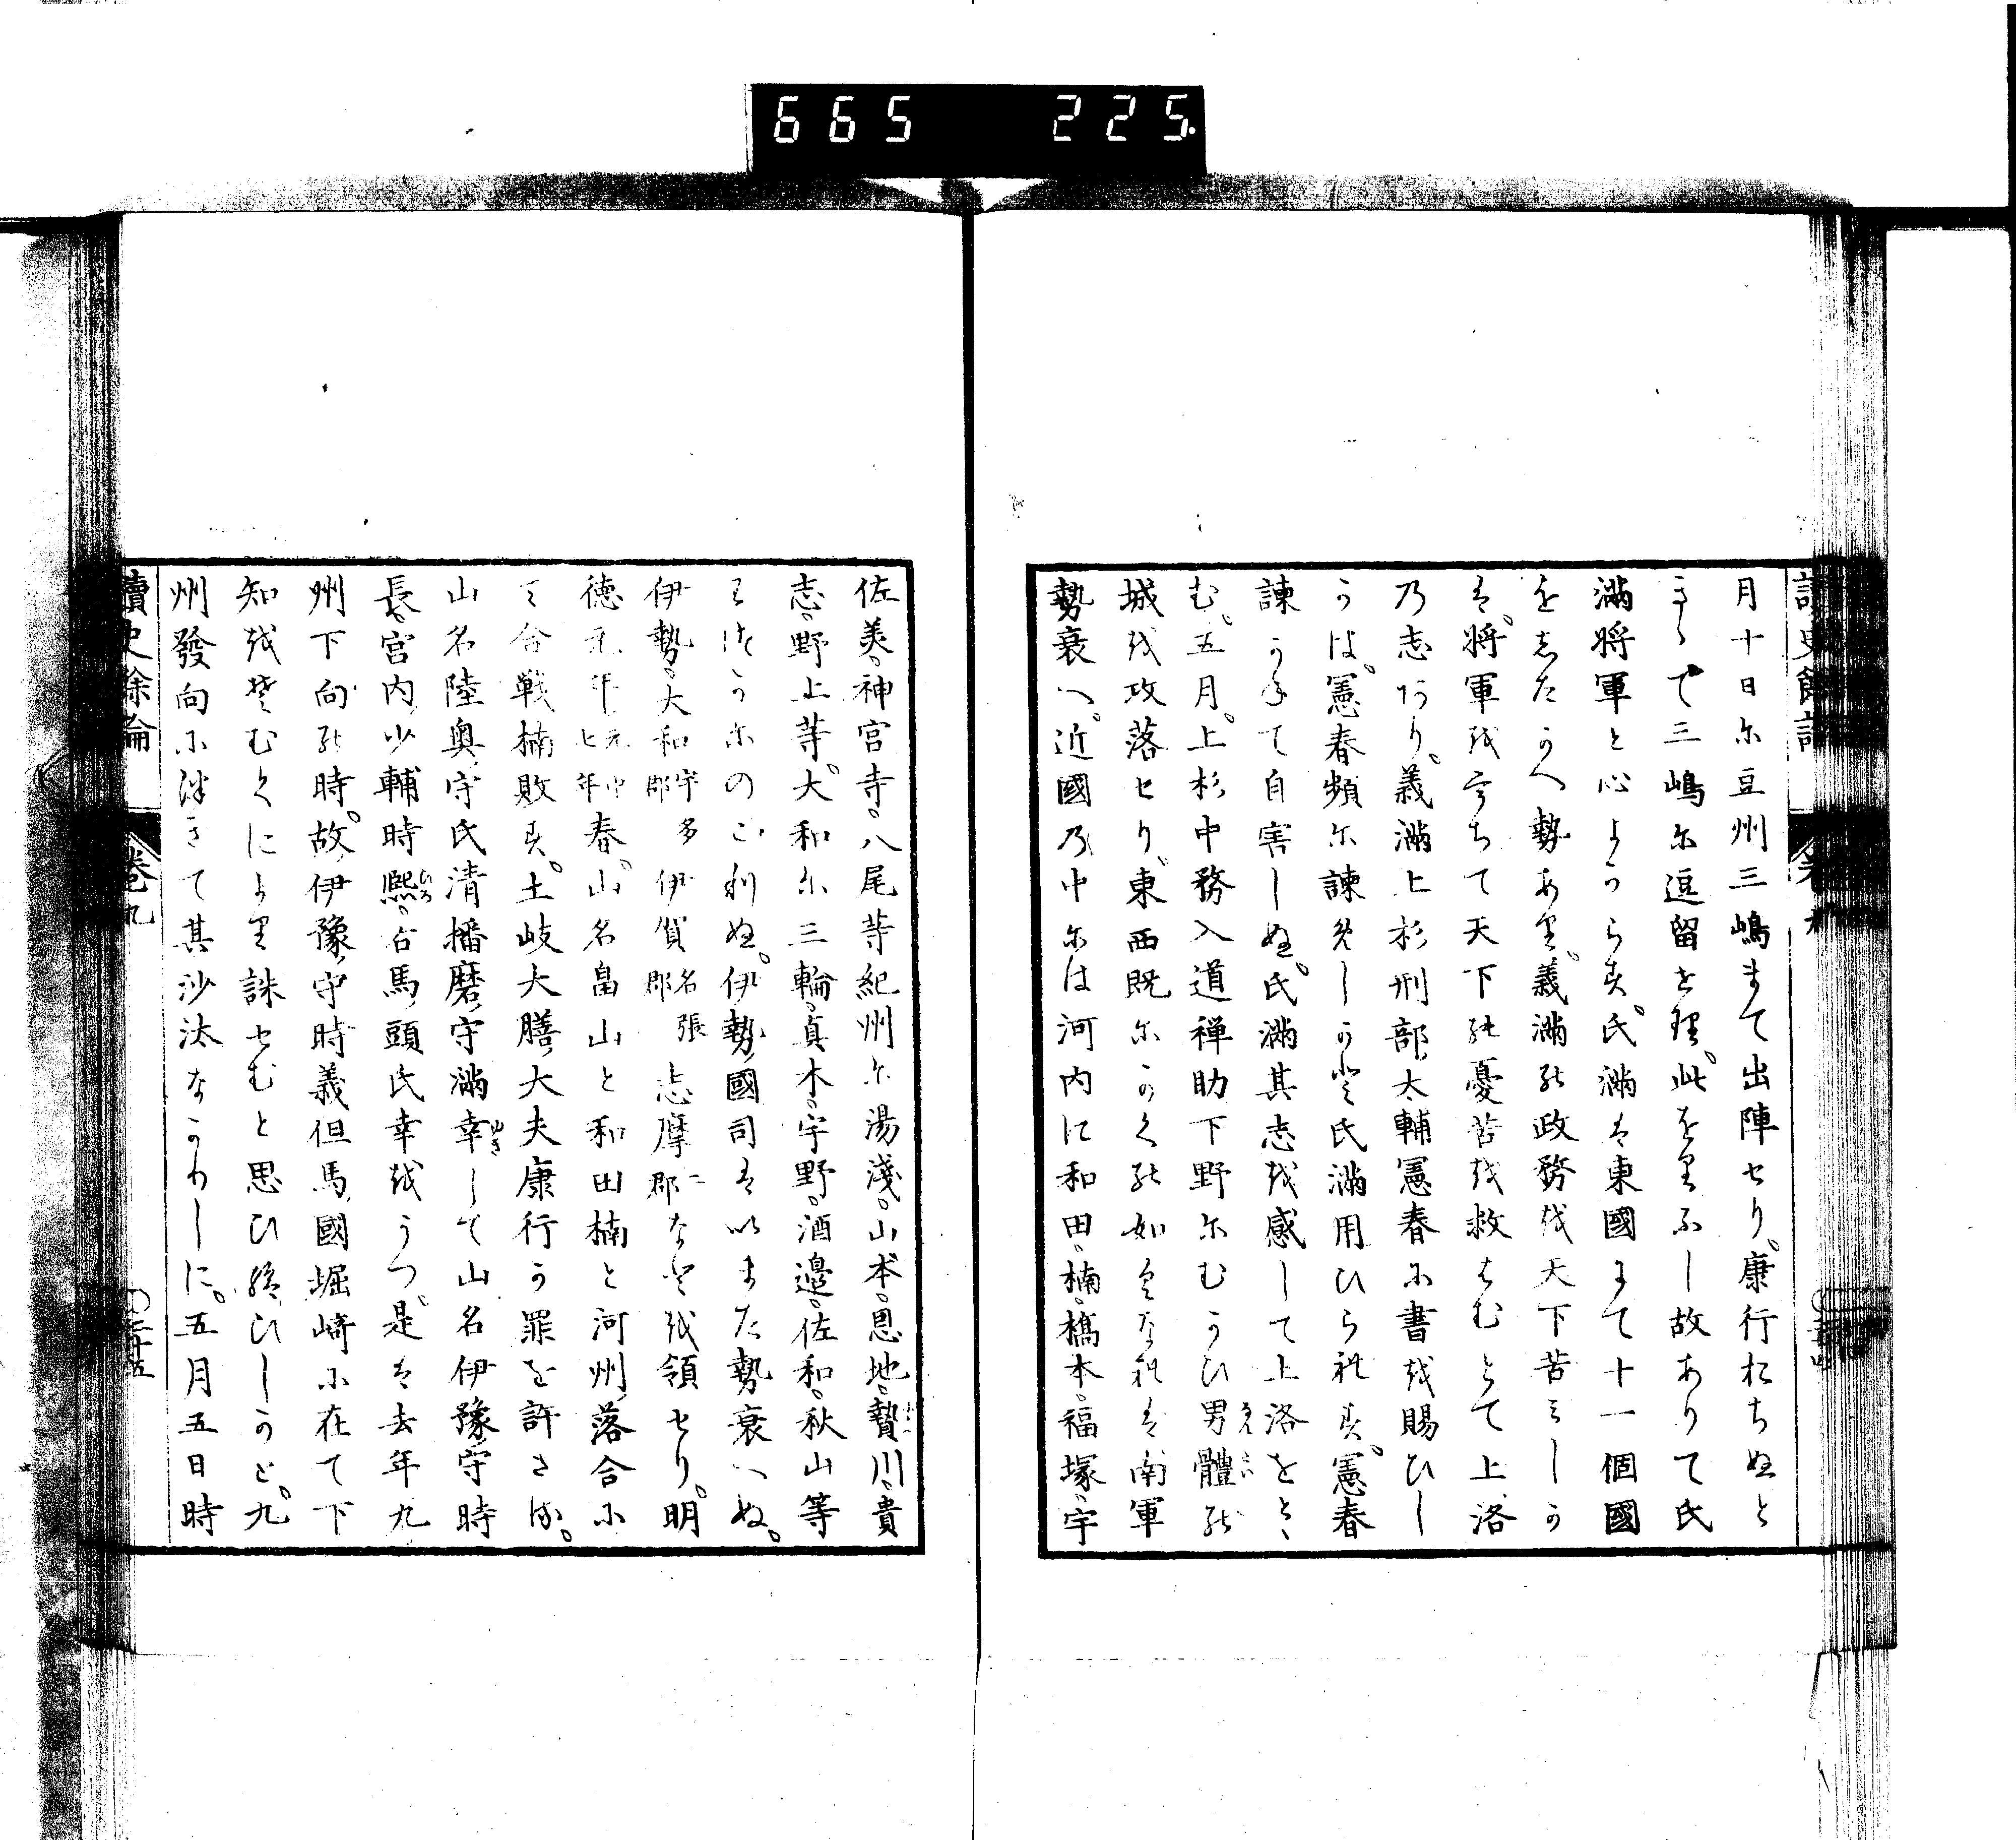 665 225.
月十日尓豆州三嶋まて出陣セり。康行おちぬと
きゝて三嶋尓逗留セ里。此をりふし故ありて氏
満将軍と心よからす。氏満は東國すて十一個國
をしたかへ勢あり。義満の政務を天下苦ミしか
は。将軍を亡ちて天下の憂苦を救はむとて上洛
乃志あり。義満上杉刑部太輔憲春に書を賜ひし
かは。憲春頻尓諫めしかと氏満用ひられす。憲春
諫かねて自害しぬ。氏満其志を感して上洛をとゝ
む。五月。上杉中務入道禅助下野尓むかひ男體の
城を攻落セり。東西既尓かくの如くなれは南軍
勢衰へ。近國乃中尓は河内に和田。楠。橋本。福塚。宇
佐美。神宮寺。八尾等紀州尓湯淺。山本。恩地。贄川。貴
志。野上等。大和尓三輪。真木。宇野。酒邉。佐和。秋山等
わつかにのこりぬ。伊勢國司はいまた勢衰へぬ。
伊勢。大和宇多郡伊賀名張郡志摩二郡なとを領セり。明
徳元年元中七年春。山名畠山と和田楠と河州落合に
て合戦楠敗す。土岐大膳大夫康行か罪を許さる。
山名陸奥守氏清播磨守満幸ゆきして山名伊豫守時
長。宮内少輔時熈ひろ。右馬頭氏幸をうつ。是は去年九
州下向の時。故伊豫守時義但馬國堀崎に在て下
知をそむくにより誅セむと思ひ給ひしかと。九
州發向に洋きて其沙汰なかりしに。五月五日時
讀史餘論 卷九 〇三十五